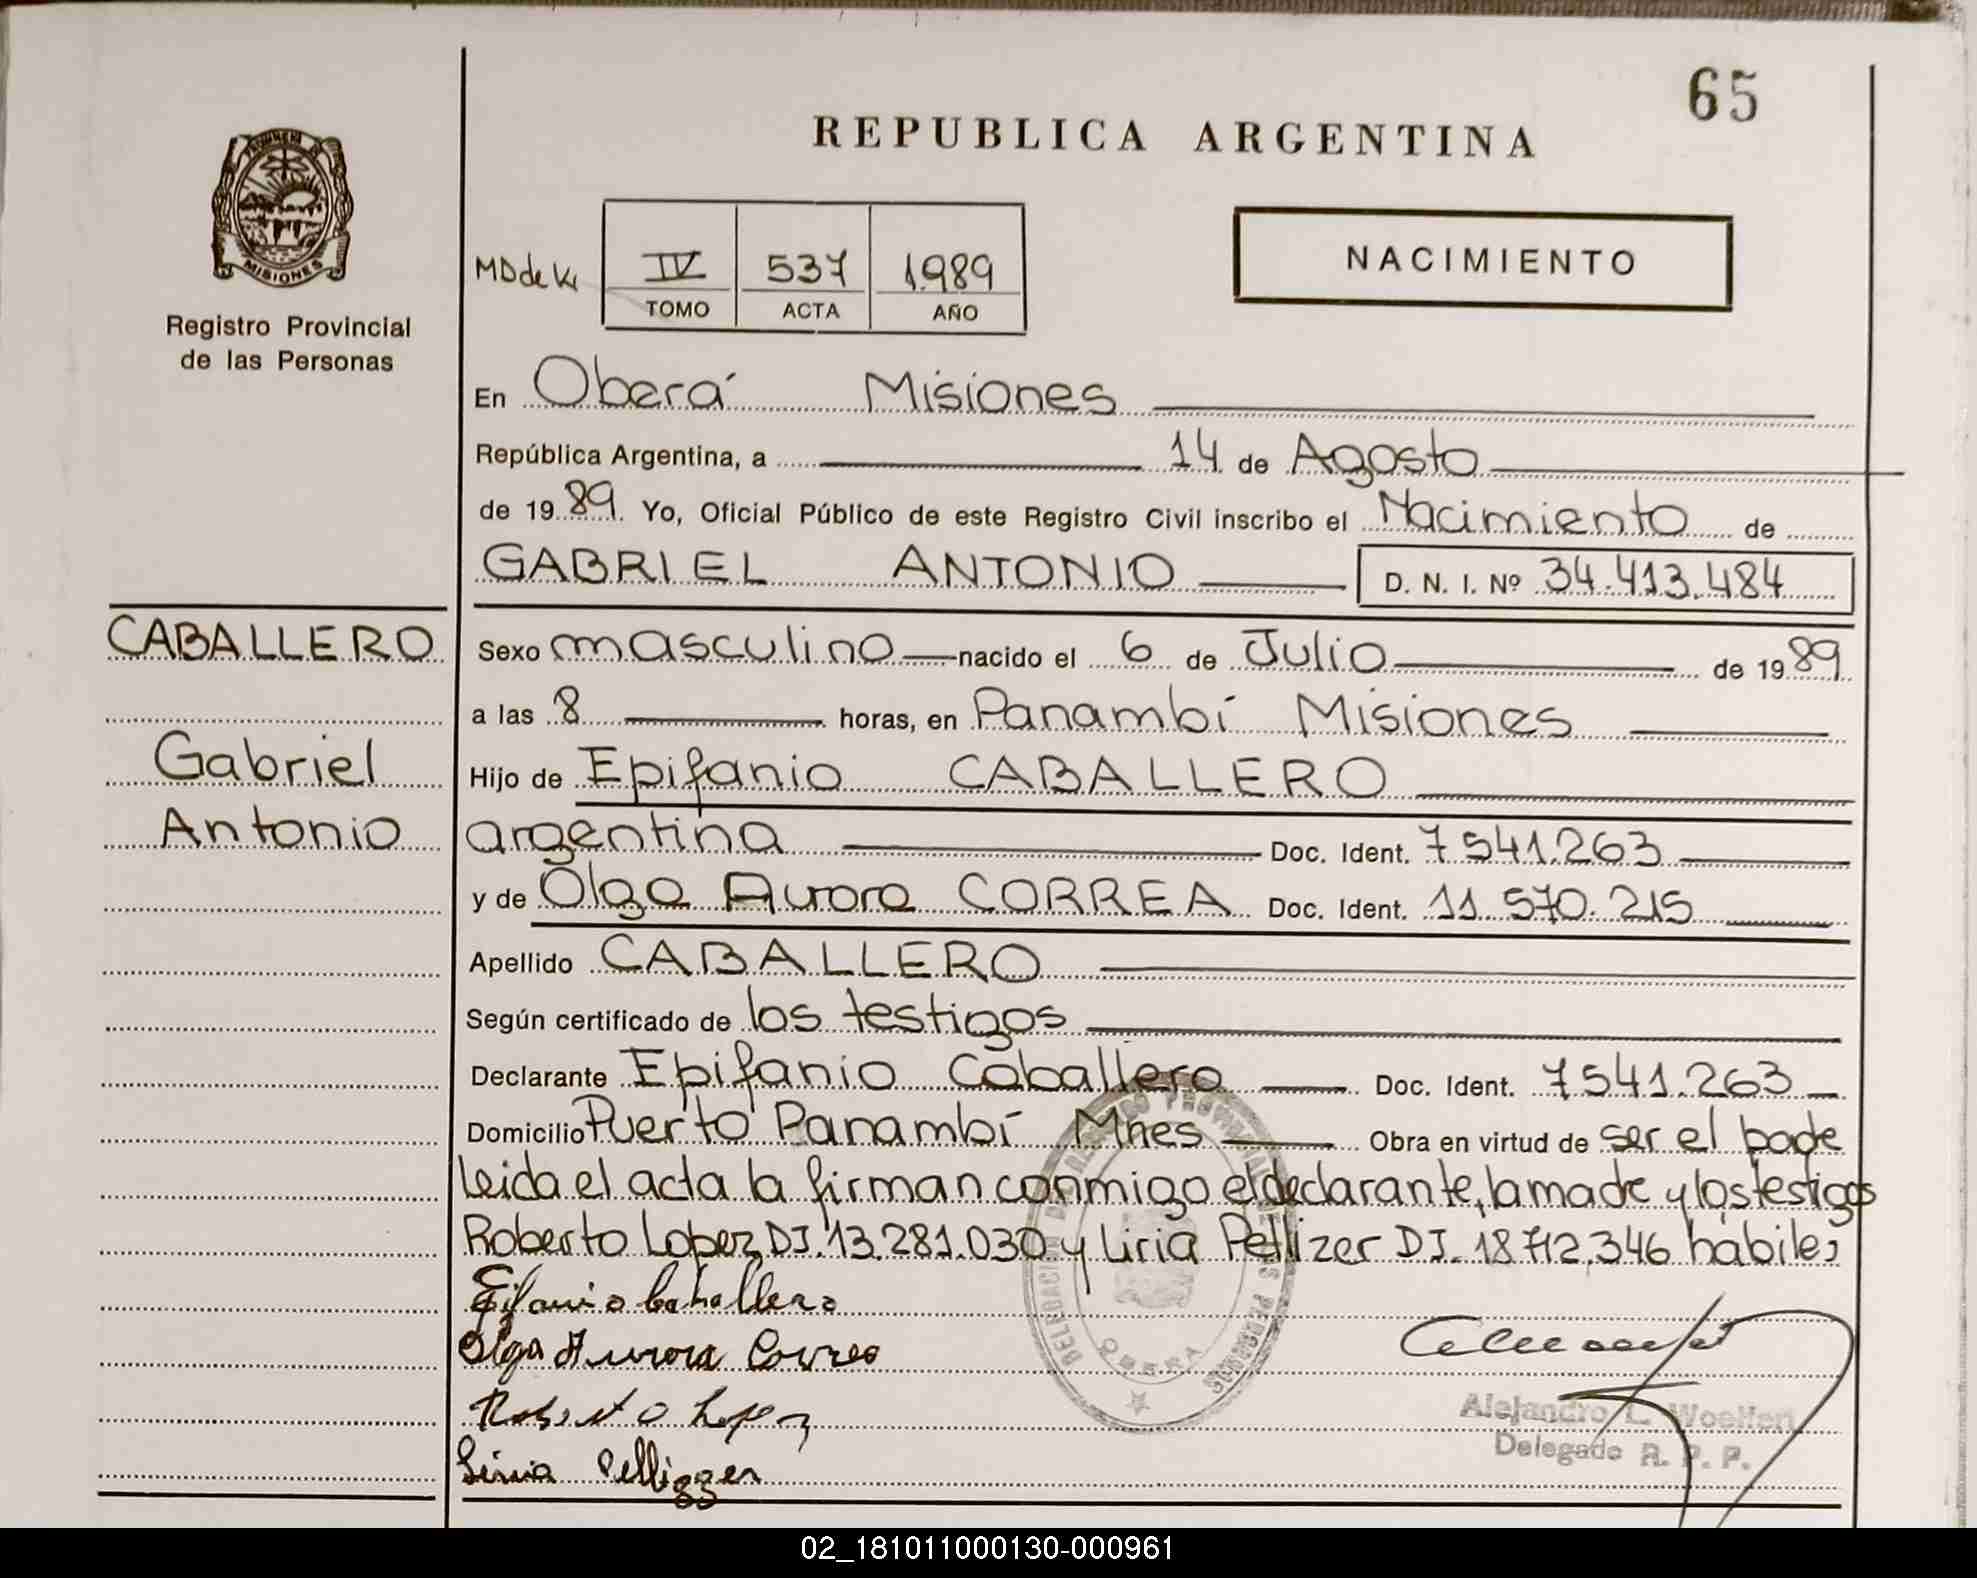 65
REPUBLICA ARGENTINA
MISIONES
Registro Provincial
de las Personas
NACIMIENTO
MD de K
IV 537 1989
TOMO ACTA AÑO
En Oberá Misiones
República Argentina, a 14 de Agosto
de 1989 Yo, Oficial Público de este Registro Civil inscribo el Nacimiento de
GABRIEL ANTONIO D. N. I. Nº 34.413.484
CABALLERO
Gabriel
Antonio
Sexo masculino nacido el 6 de Julio de 1989
a las 8 horas, en Panambí Misiones
Hijo de Epifanio CABALLERO
argentina Doc. Ident. 7541.263
y de Olga Aurora CORREA Doc. Ident. 11 570.215
Apellido CABALLERO
Según certificado de los testigos
Declarante Epifanio Caballero Doc. Ident. 7541.263
Domicilio Puerto Panambí Mnes Obra en virtud de ser el padre
leida el acta la firman conmigo el declarante, la madre y los testigos
Roberto Lopez DJ. 13.281.030 y Liria Pellizer DJ. 18 712.346 hábiles
Epifanio Caballero
Olga Aurora Correa
Roberto Lopez
Liria Pellizzer
DELEGACION DEL REGISTRO PROVINCIAL DE LAS PERSONAS
OBERA
Alejandro L. Woelfert
Delegado R. P. P.
02_181011000130-000961